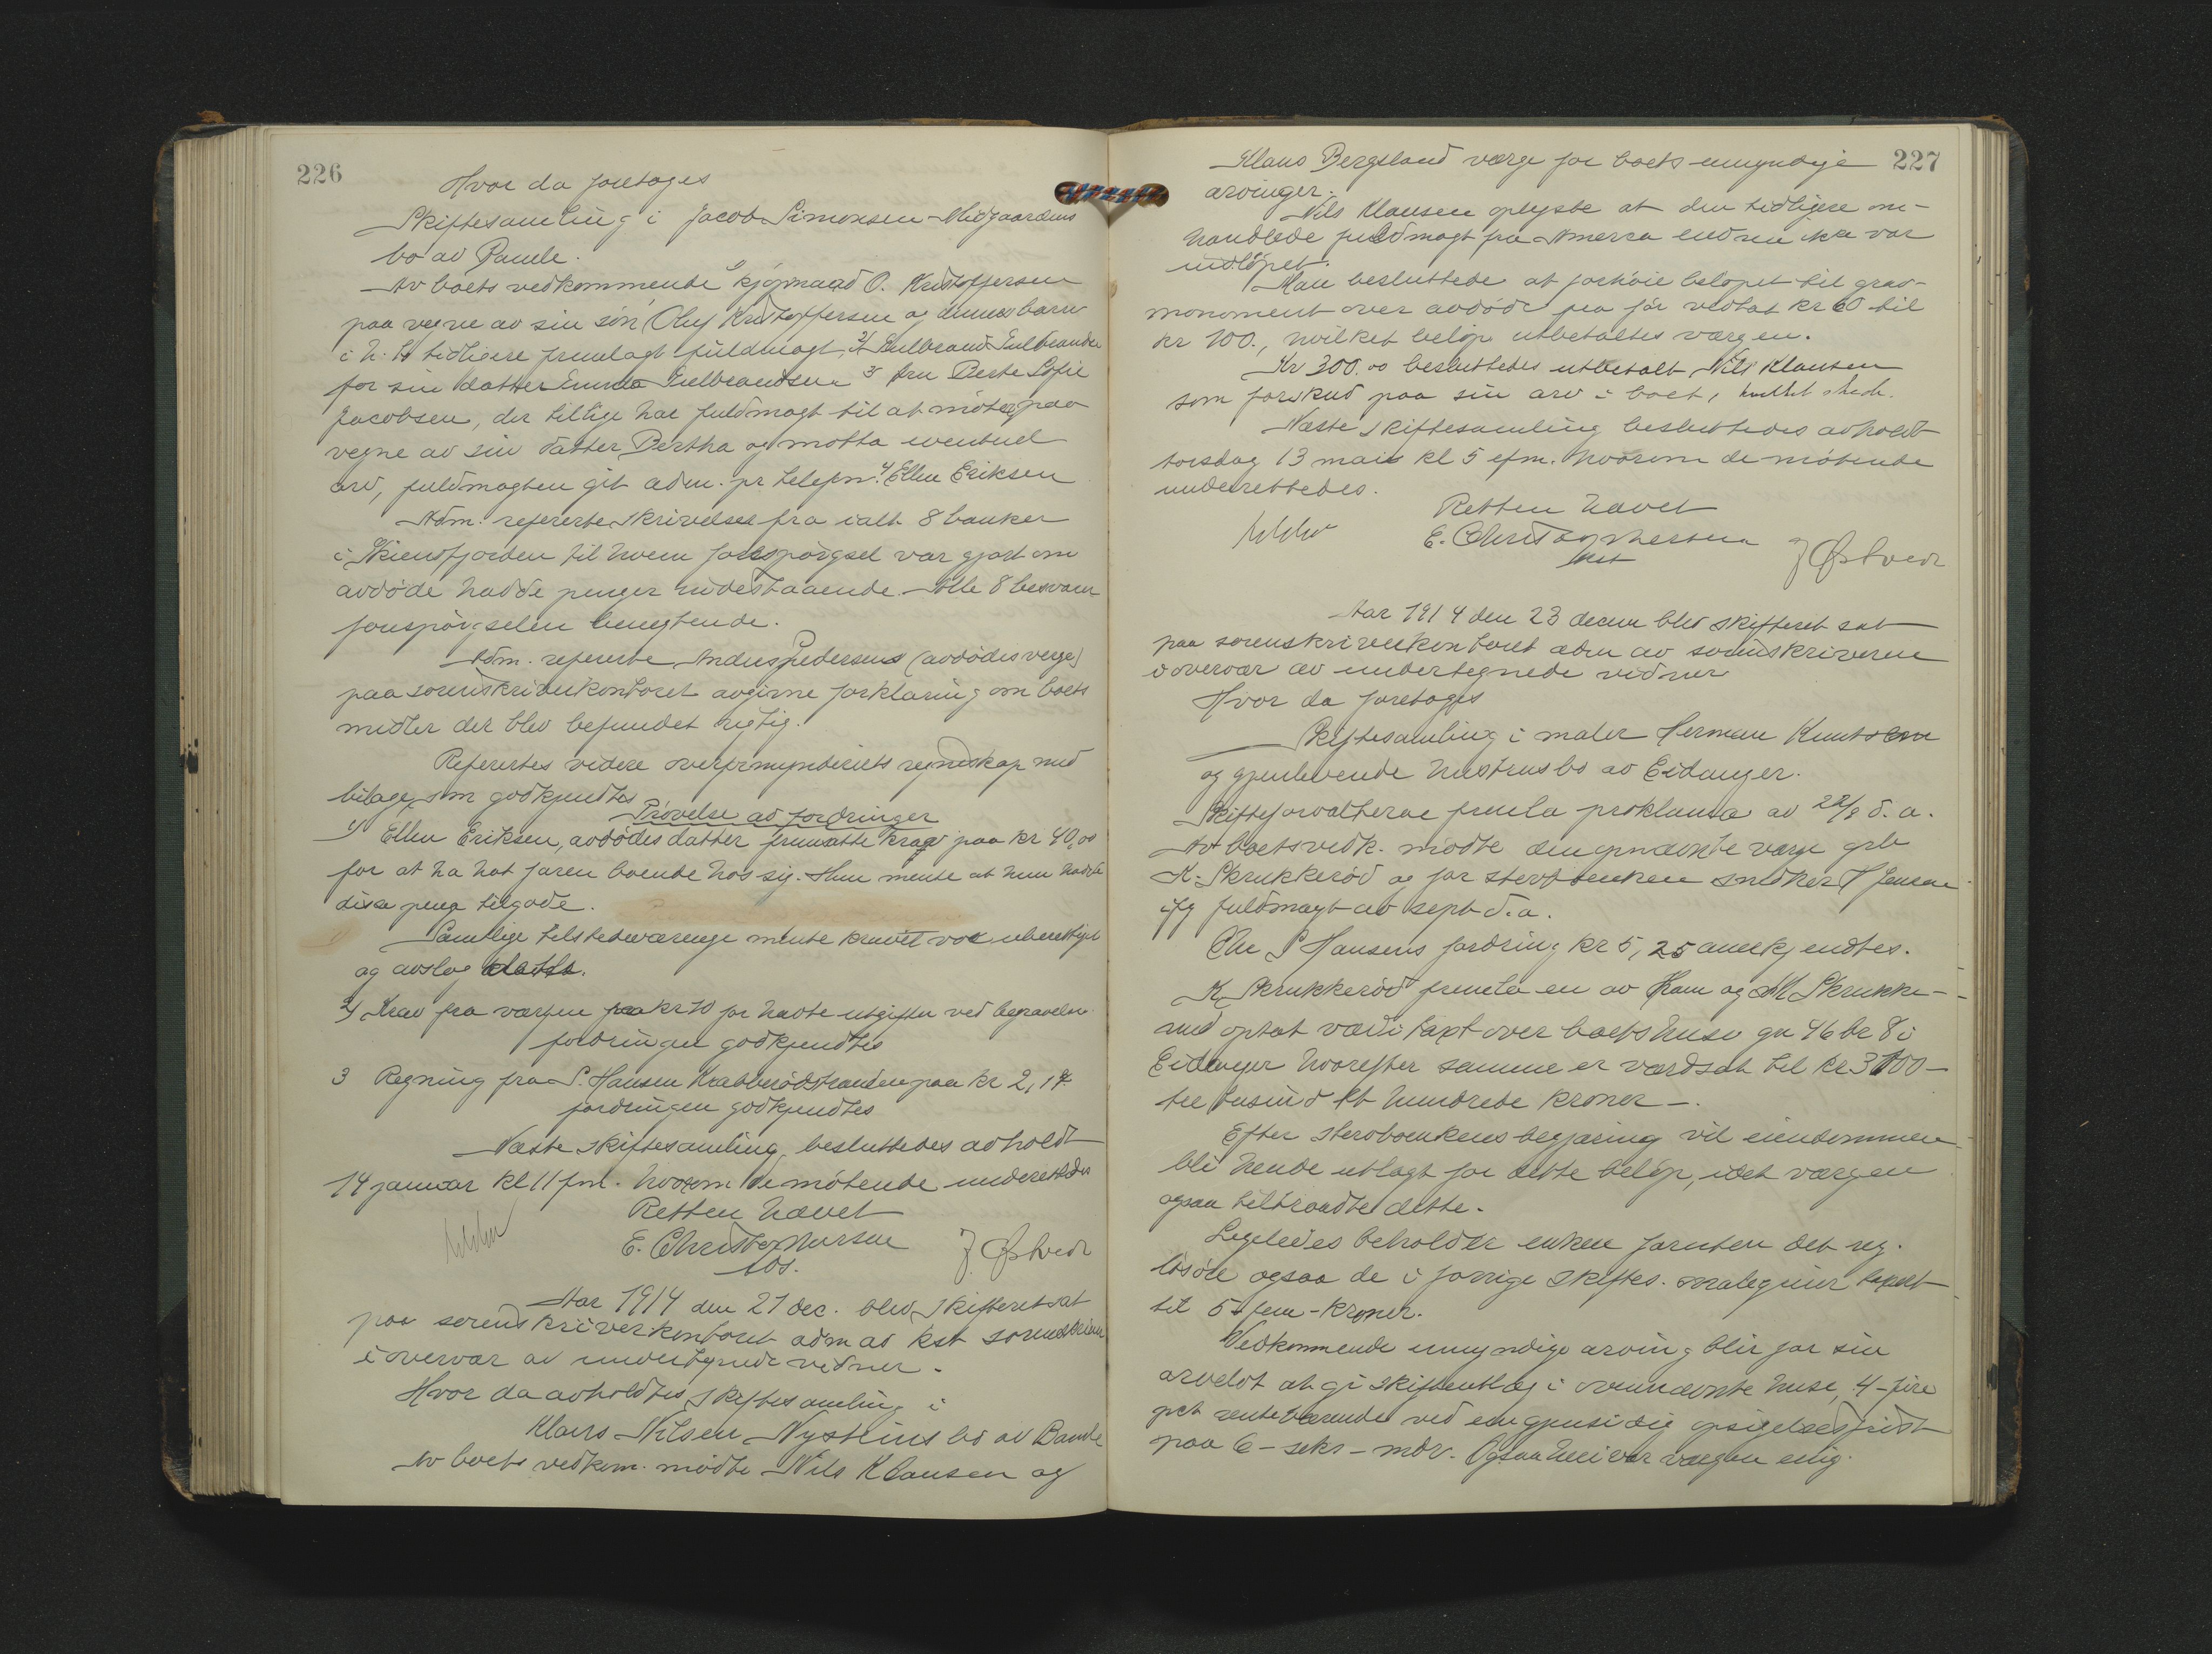 226
Hvor da foretoges
Skiftesamling i Jacob Simonsen Midgaardens
bo av Bamle.
Av boets vedkommende 1) kjøpmand O. Kristoffersen
paa vegne av sin søn Oluf Kristoffersen og dennes barn
i h. t. tidligere fremlagt fuldmagt, 2) Gulbrand Gulbrandsen
for sin datter Emma Gulbrandsen 3) fru Berte Sofie
Jacobsen, der tillige har fuldmagt til at møte paa
vegne av sin datter Bertha og motta eventuel
arv, fuldmagten git adm. pr telefon. 4) Ellen Eriksen
Adm. refererte skrivelser fra ialt 8 banker
i Skiensfjorden til hvem forespørgsel var gjort om
avdøde hadde penger indestaaende. Alle 8 besvarer
forespørgselen benegtende.
Adm. refererte Anders Pedersens (avdødes verge)
paa sorenskriverkontoret avgivne forklaring om boets
midler der blev befundet rigtig.
Refertes videre overformynderiets regnskap med
bilage, som godkjendtes
Prøvelse av fordringer
1) Ellen Eriksen, avdødes datter fremsatte krav paa kr 40,00
for at ha hat faren boende hos sig. Hun mente at hun hadde
disse penge tilgode.
Samtlige tilstedeværenge mente kravet var uberettiget
og avslog
2) Krav fra vergen paa kr 10 for havte utgifter ved begravelse.
fordringen godkjendtes
3 Regning fra S. Hansen Krabberødstranden paa kr 2,17
fordringen godkjendtes
Næste skiftesamling besluttedes avholdt
14 januar kl 11 fm. hvorom de møtende underettedes
Retten hævet
E. Christophersen J. Østvedt
kst.
Aar 1914 den 21 dec. blev skifteret sat
paa sorenskriverkontoret adm av kst sorenskriver
i overvær av undertegnede vidner.
Hvor da avholdtes skiftesamling i
Klaus Nilsen Nysteins bo av Bamle
Av boets vedkom. mødte Nils Klausen og
227
Klaus Bergsland verge for boets umyndige
arvinger.
Nils Klausen oplyste at den tidligere om-
handlede fuldmagt fra Amerika endnu ikke var
indløpet.
Man besluttede at forhøie beløpet til grav-
monument over avdøde fra før vedtat kr 60 til
kr 100., hvilket beløp utbetaltes værgen.
Kr 300.00 besluttedes utbetalt Nils Klausen
som forskud paa sin arv i boet, hvilket skede.
Næste skiftesamling besluttedes avholdt
torsdag 13 mars kl 5 efm. hvorom de møtende
underrettedes.
Retten hævet
E. Christophersen J Østvedt
kst
Aar 1914 den 23 decem blev skifteret sat
paa sorenskriverkontoret adm av sorenskriveren
i overvær av undertegnede vidner
Hvor da foretoges
Skiftesamling i maler Herman Knutsen
og gjenlevende hustrus bo av Eidanger.
Skifteforvalteren fremla proklama av 28/8 d. a.
Av boets vedk. mødte den opnævnte verge grb
K. Skrukkerød og for stervboenken snedker H Jensen
ifg fuldmagt av sept d. a.
Chr S Hansens fordring kr 5,25 anerkjendtes.
K Skrukkerød fremla en av ham og M Skrukke-
rød optat værditaxt over boets huse gn 46 br 8 i
Eidanger hvorefter samme er værdsat til kr 3100 -
tre tusind et hundrede kroner -.
Efter stervboenkens begjæring vil eiendommen
bli hende utlagt for dette beløp, idet værgen
ogsaa tiltraadte dette.
Ligeledes beholder enken foruten det reg.
løsøre ogsaa de i forrige skiftes. malegreier taxert
til 5 - fem - kroner.
Vedkommende umyndige arving blir for sin
arvelot at gi skifteutlæg i ovennævnte huse, 4 - fire
pct rentebærende ved en gjensidig opsigelsesfrist
paa 6 - seks - mdr. Ogsaa heri var værgen enig.